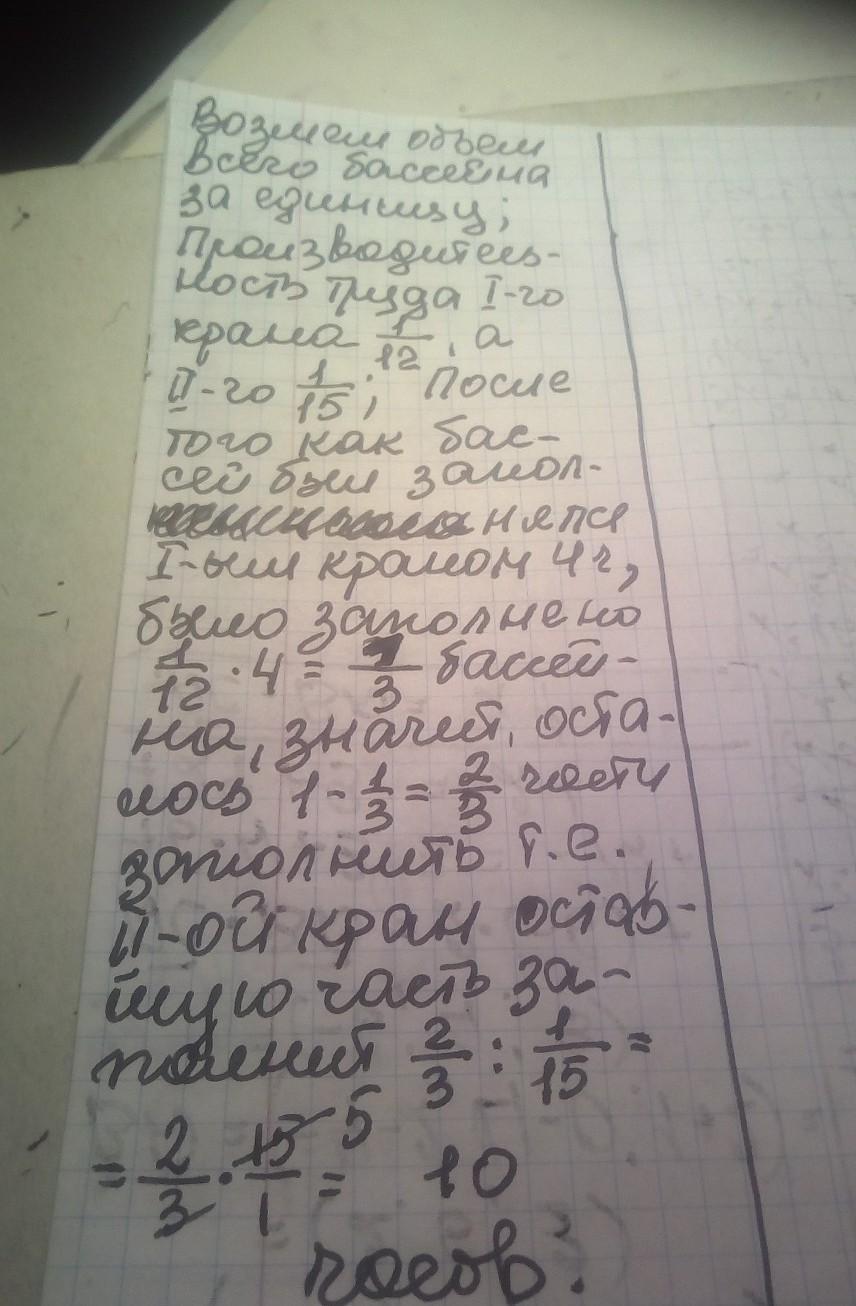 Возмем объем
всего бассейна
за единицу;
Производитель-
ность труда I-го
крана 1/12, а
II-го 1/15; После
того как бас-
сей был запол-
нялся
I-ым краном 4ч,
было заполнено
1/12 · 4 = 1/3 бассей-
на, значит, оста-
лось 1 - 1/3 = 2/3 части
заполнить т.е.
II-ой кран остав-
шую часть за-
полнит 2/3 : 1/15 =
= 2/3 · 15/1 5 = 10
часов.